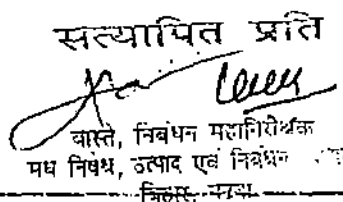 सत्यापित प्रति
वास्ते, निबंधन महानिरीक्षक
मद्य निषेध, उत्पाद एवं निबंधन
बिहार, पटना